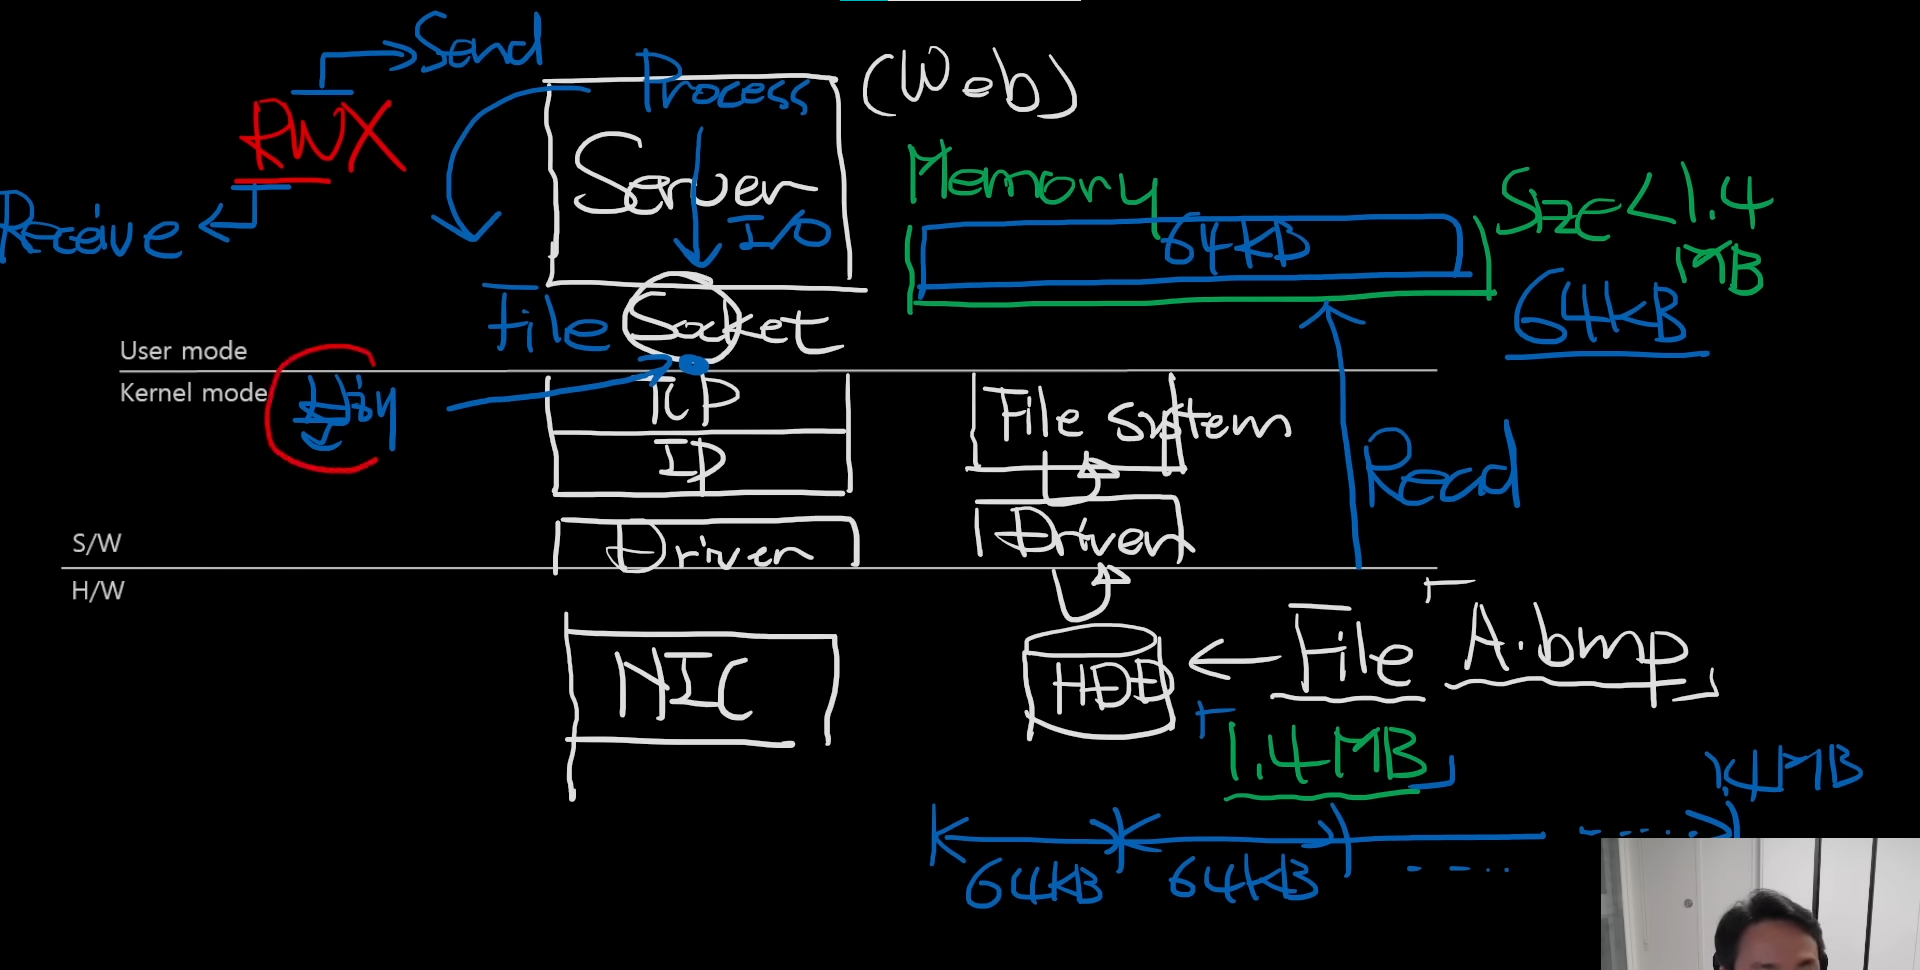 Send
RWX
Receive
Process
(Web)
Server
I/O
File
Socket
Memory
64KB
Size < 1.4
MB
64KB
User mode
Kernel mode
TCP
IP
File system
Read
Driver
Driver
S/W
H/W
NIC
HDD
File
A.bmp
1.4MB
1.4MB
64KB
64KB